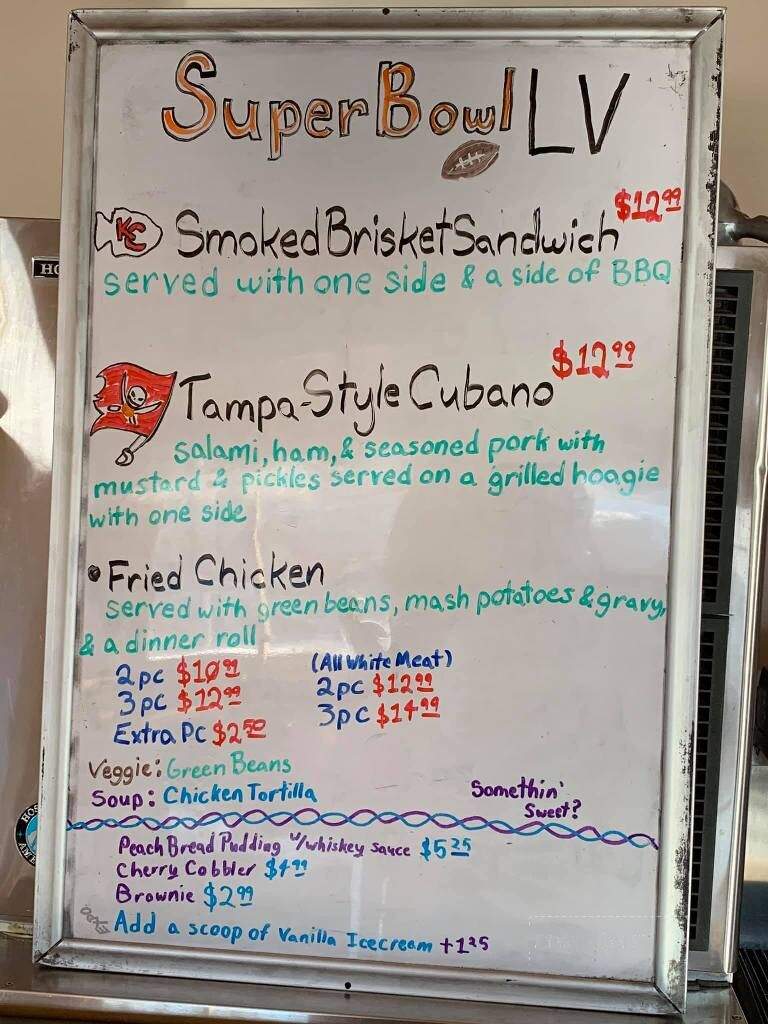 Super Bowl LV
KC
Smoked Brisket Sandwich $12.99
served with one side & a side of BBQ
Tampa-Style Cubano $12.99
salami, ham, & seasoned pork with
mustard & pickles served on a grilled hoagie
with one side
• Fried Chicken
served with green beans, mash potatoes & gravy,
& a dinner roll
2pc $10.99
3pc $12.99
Extra Pc $2.50
(All White Meat)
2pc $12.99
3pc $14.99
Veggie: Green Beans
Soup: Chicken Tortilla
Somethin'
Sweet?
Peach Bread Pudding w/whiskey sauce $5.25
Cherry Cobbler $4.99
Brownie $2.99
Add a scoop of Vanilla Icecream +1.25
HO